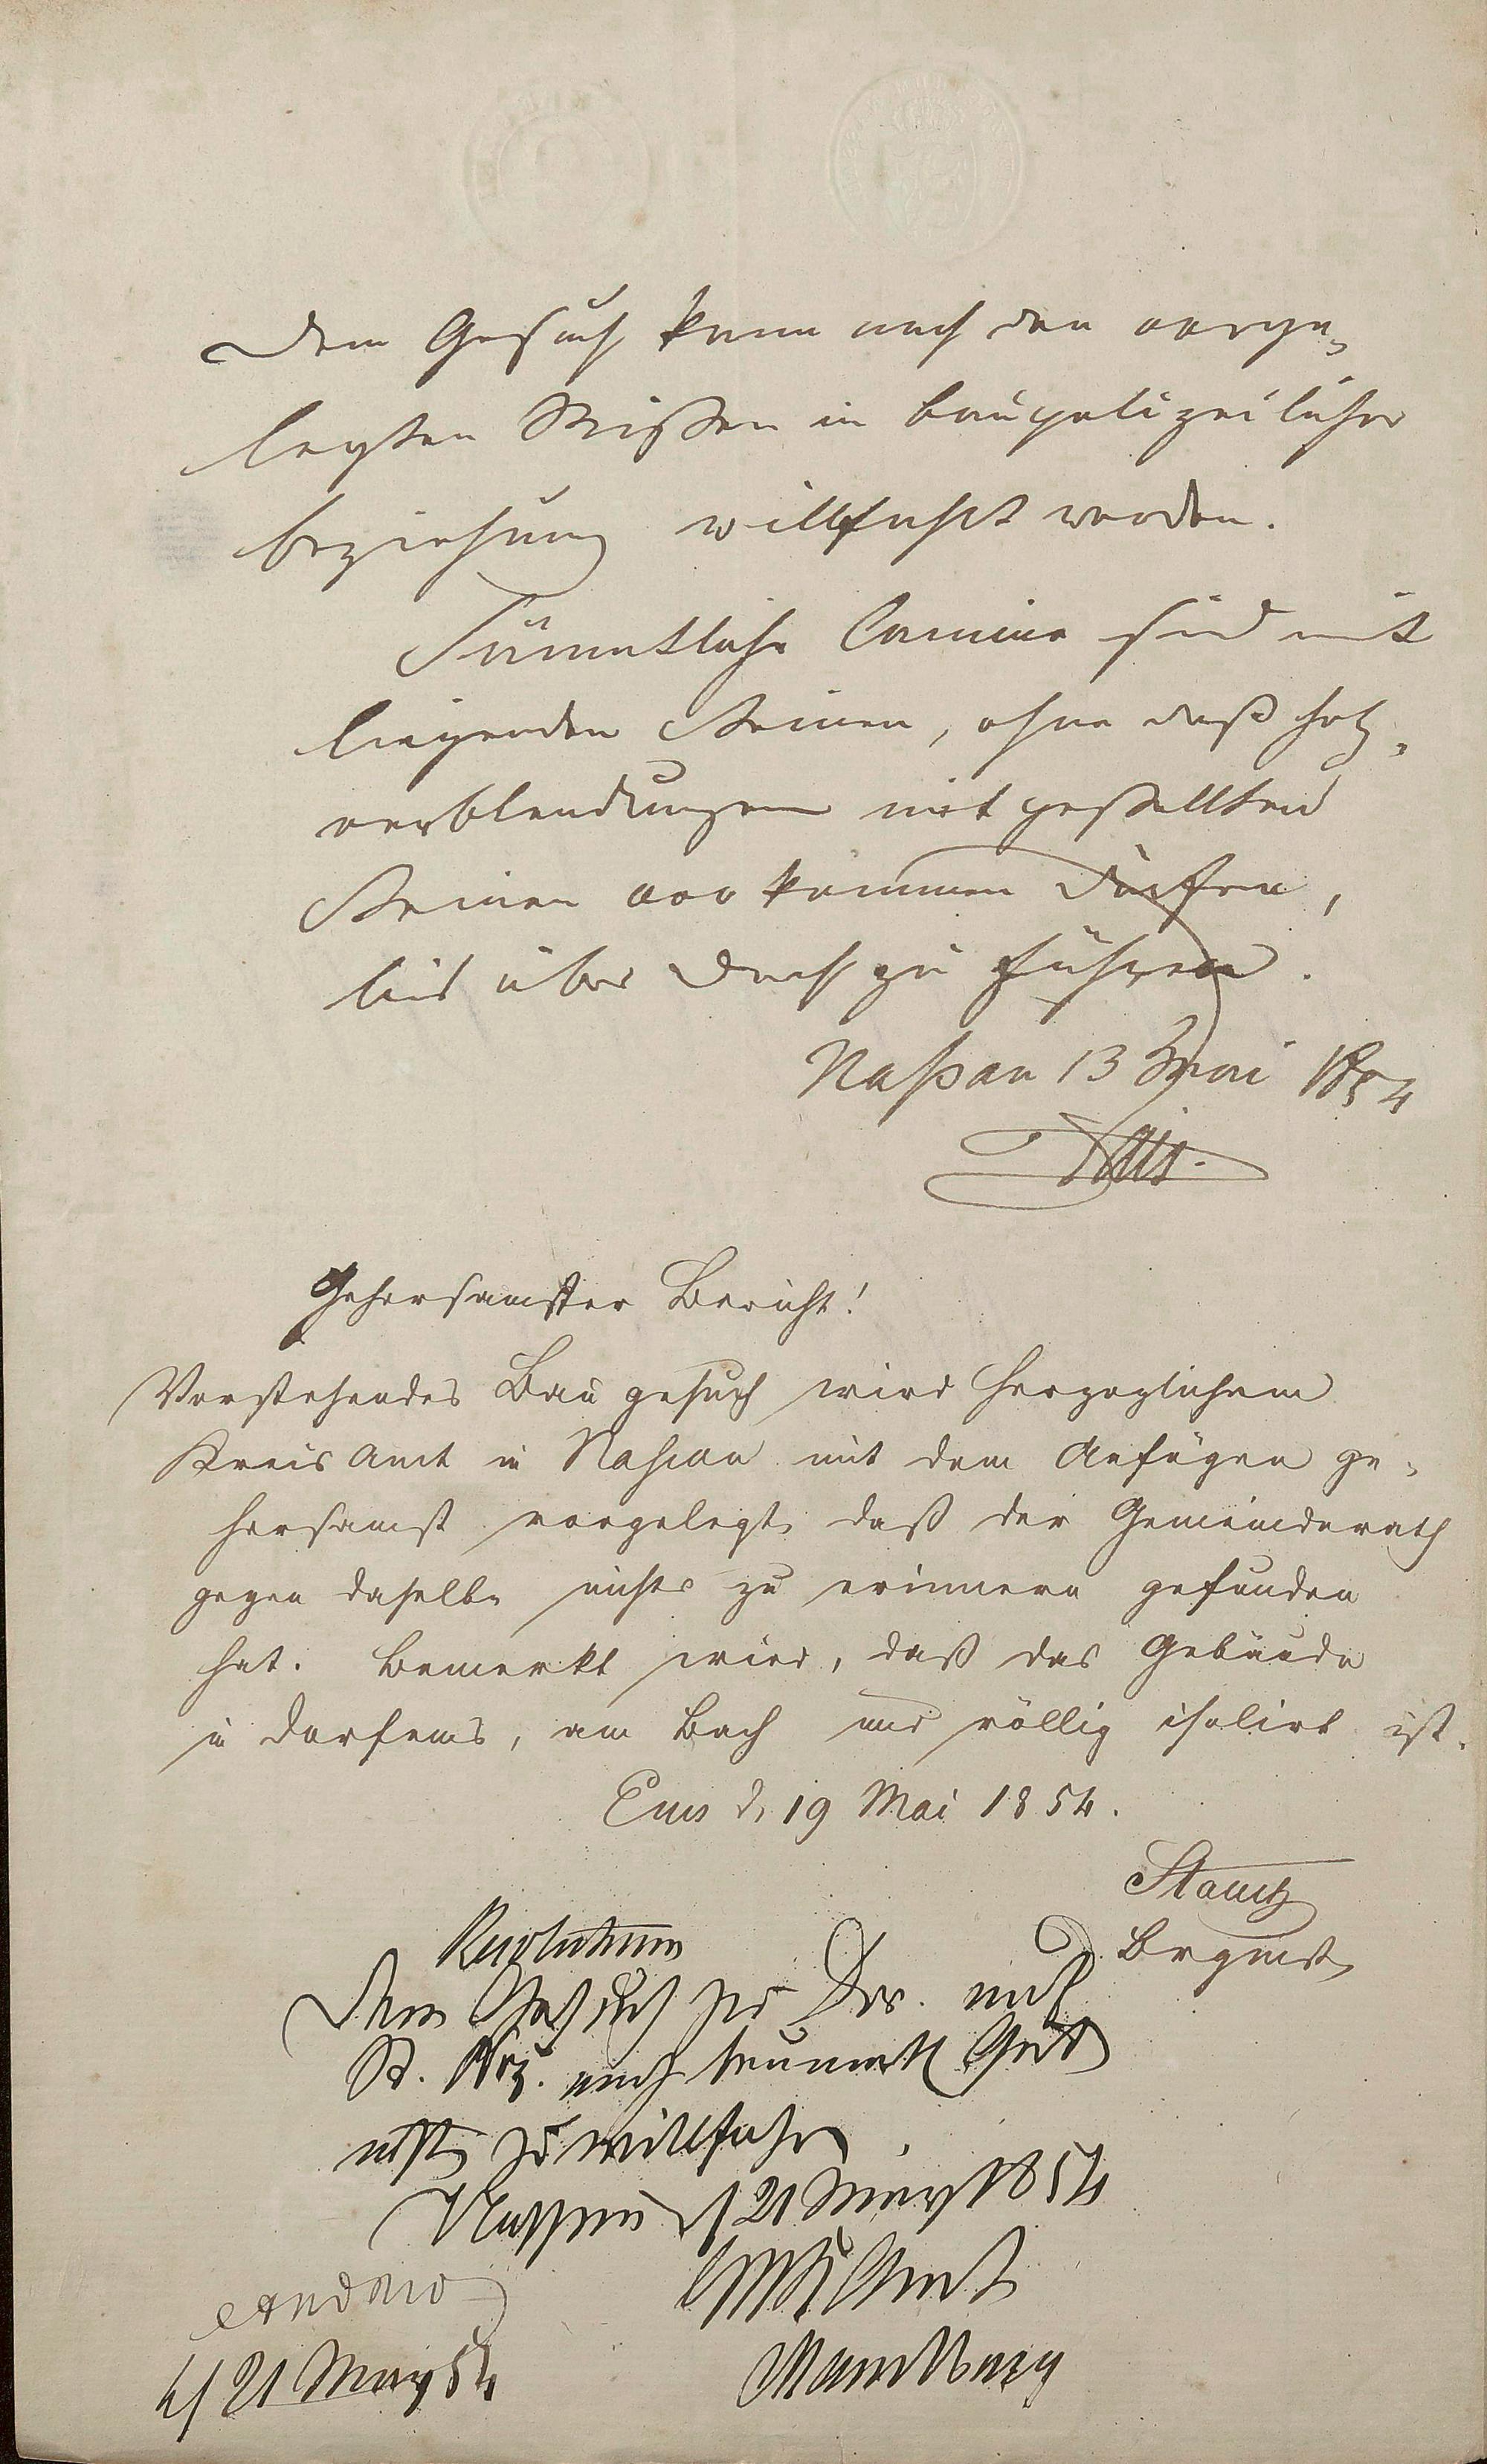 Dem Gesuch kann nach den vorge-
legten Rissen in baupolizeilicher
Beziehung willfahrt werden.
Sämmtliche Camine sind mit
liegenden Steinen, ohne daß Holz-
verblendungen mit gestellten
Steinen vorkommen dürfen,
bis über Dach zu führen.
Naßau 13 Mai 1854
Gehorsamster Bericht!
Vorstehendes Baugesuch wird Herzoglichem
Kreisamt in Nassau mit dem Anfügen ge-
horsamst vorgelegt, daß der Gemeinderath
gegen dasselbe nichts zu erinnern gefunden
hat. Bemerkt wird, daß das Gebäude
in Dorfems, am Bach und völlig isolirt ist.
Ems d. 19 Mai 1854.
Stautz
Brgmstr
Resolutum
Dem Gesuch zu
St. nach
zu willfahren
Nassau d 21 May 1854
Amt
21 May 54